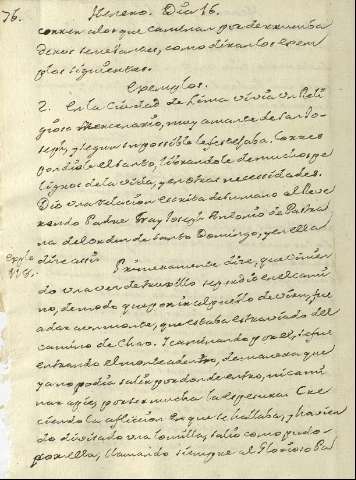 76. Noveno. Dia 16.
corren a los que caminan por de
, como diran los exem
plos siguientes.
Exemplos.
2. En la Ciudad de Lima vivia un Reli
gioso Mercenario, muy amante de San Jo
seph, y segun su possible le festejaba. Corres
pondiole el Santo, librandole de muchos pe
ligros de la vida, y en otras necessidades.
Dio una relacion escrita de su mano al Reve
rendo Padre Fray Joseph Antonio de Pastra
na del Orden de Santo Domingo, y en ella
dice assi:
Exmplo
118.
Primeramente dice, que vinien
do una vez de truxillo se perdio en el cami
no, de modo que por ir al pueblo de Viru, fue
a dar a un monte, que estaba extraviado del
camino de Chao. I caminando por el, se fue
entrando el monte adentro, de manera que
ya no podia salir por donde entro, ni cami
nar a pie, por ser mucha la espesura. Cre
ciendo la afliccion en que se hallaba, y havien
do divisado una lomilla, salio como pudo
por ella, llamando siempre al Glorioso Pa